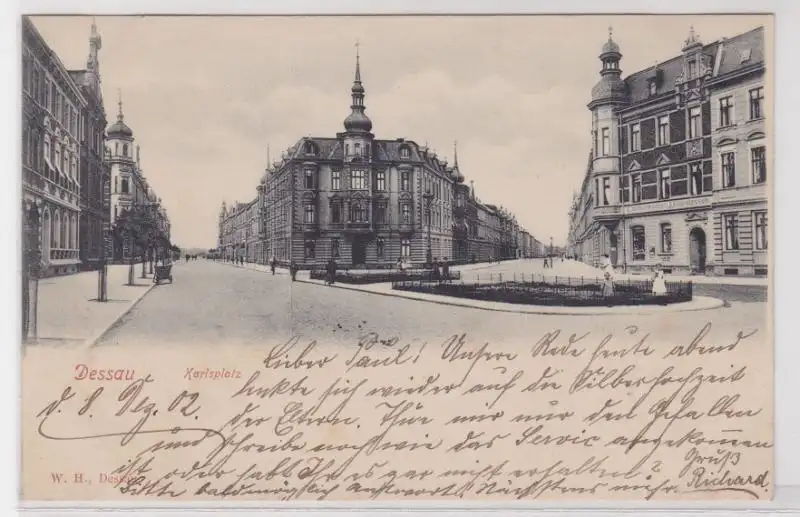 Dessau Karlsplatz
d. 8. Dez. 02.
Lieber Paul! Unsere Rede heute abend
lenkte sich wieder auf die Silberhochzeit
der Eltern. Thue mir nur den Gefallen
und schreibe noch wie das Servic angekommen
ist oder habt Ihr es gar nicht erhalten?
Bitte baldmöglich Antwort. Nächstens mehr.
Gruß
Richard.
W. H., Dessau